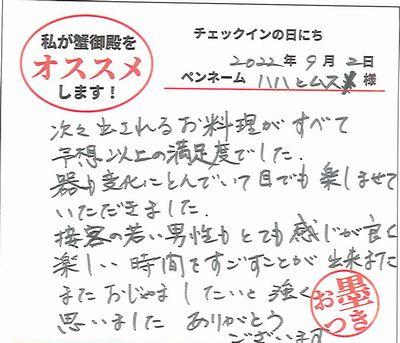 私が蟹御殿を
オススメ
します！
チェックインの日にち
2022年9月2日
ペンネーム ハハとムスメ 様
次々出されるお料理がすべて
予想以上の満足度でした.
器も変化にとんでいて目でも楽しませて
いただきました.
接客の若い男性もとても感じが良く
楽しい時間をすごすことが出来ました
またおじゃましたいと強く
思いました ありがとう
ございます
お墨つき